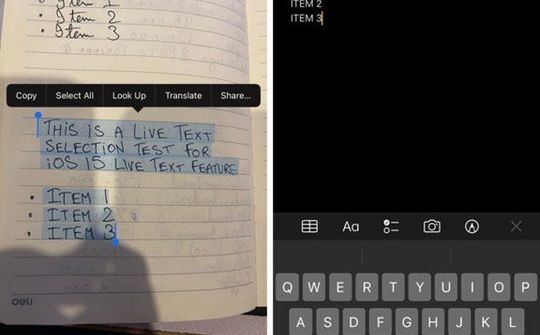 Item 1
Item 2
Item 3
Copy
Select All
Look Up
Translate
Share...
THIS IS A LIVE TEXT
SELECTION TEST FOR
iOS 15 LIVE TEXT FEATURE
ITEM 1
ITEM 2
ITEM 3
deli
ITEM 2
ITEM 3
Aa
Q W E R T Y U I O P
A S D F G H J K L